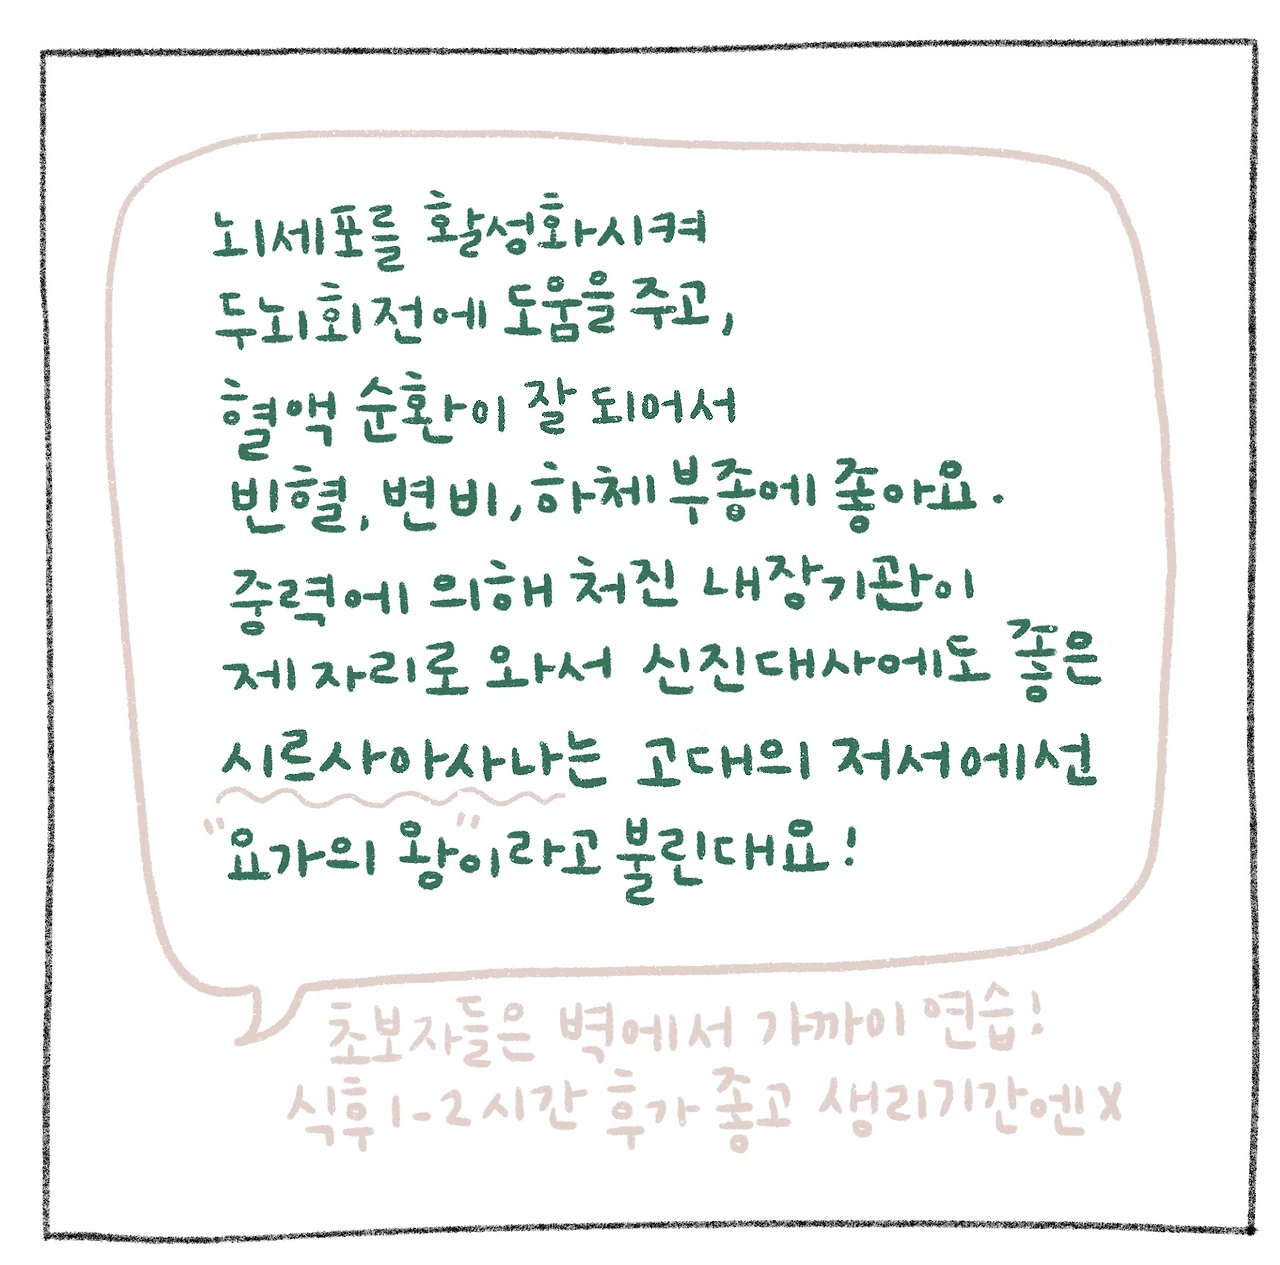 뇌세포를 활성화시켜
두뇌회전에 도움을 주고,
혈액 순환이 잘 되어서
빈혈, 변비, 하체 부종에 좋아요.
중력에 의해 처진 내장기관이
제 자리로 와서 신진대사에도 좋은
시르사아사나는 고대의 저서에선
"요가의 왕"이라고 불린대요!
초보자들은 벽에서 가까이 연습!
식후 1-2시간 후가 좋고 생리기간엔 X